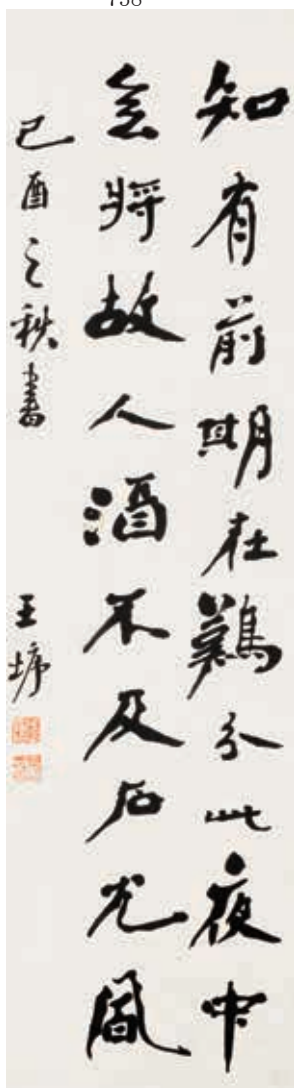 738
知有前期在難分此夜中
無將故人酒不及石尤風
己酉之秋書 王墉